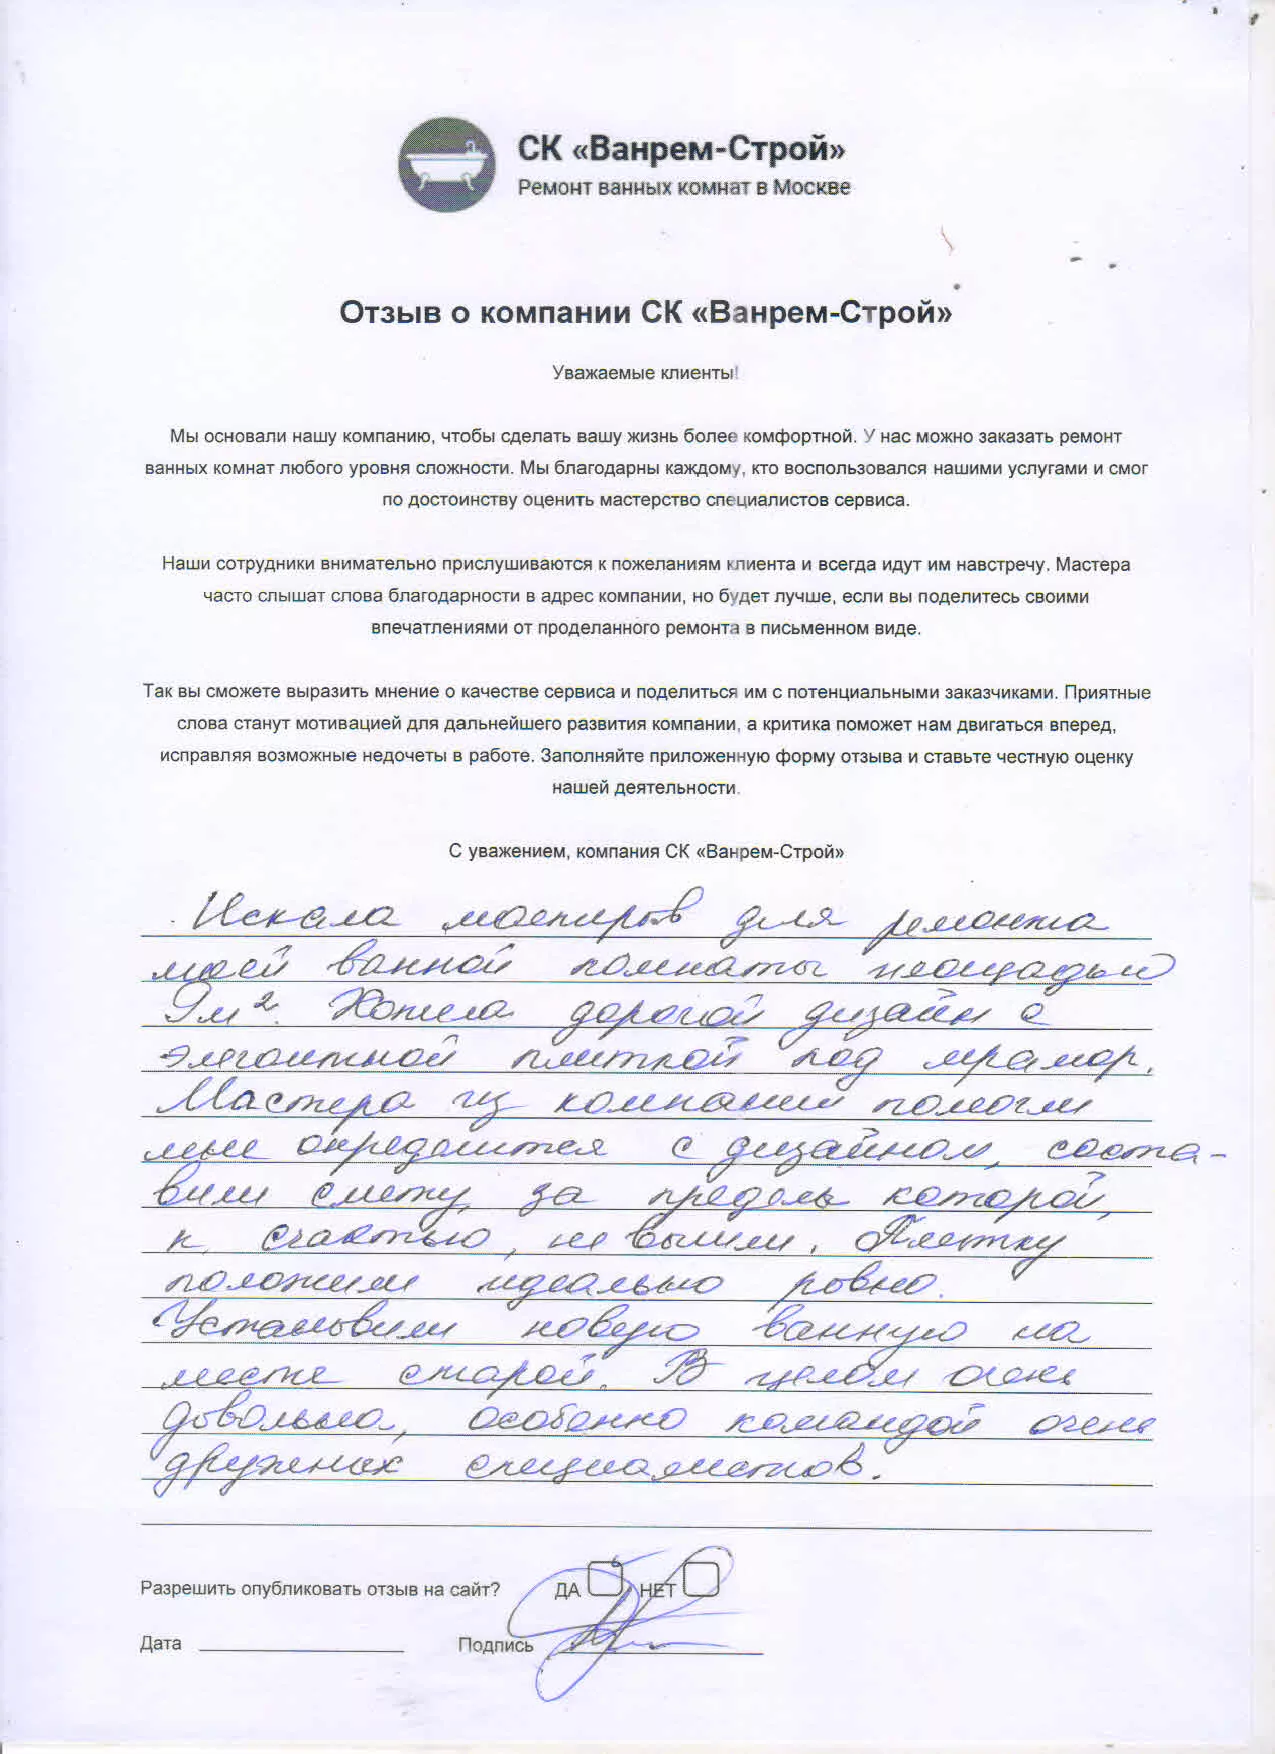 СК «Ванрем-Строй»
Ремонт ванных комнат в Москве
Отзыв о компании СК «Ванрем-Строй»
Уважаемые клиенты!
Мы основали нашу компанию, чтобы сделать вашу жизнь более комфортной. У нас можно заказать ремонт
ванных комнат любого уровня сложности. Мы благодарны каждому, кто воспользовался нашими услугами и смог
по достоинству оценить мастерство специалистов сервиса.
Наши сотрудники внимательно прислушиваются к пожеланиям клиента и всегда идут им навстречу. Мастера
часто слышат слова благодарности в адрес компании, но будет лучше, если вы поделитесь своими
впечатлениями от проделанного ремонта в письменном виде.
Так вы сможете выразить мнение о качестве сервиса и поделиться им с потенциальными заказчиками. Приятные
слова станут мотивацией для дальнейшего развития компании, а критика поможет нам двигаться вперед,
исправляя возможные недочеты в работе. Заполняйте приложенную форму отзыва и ставьте честную оценку
нашей деятельности.
С уважением, компания СК «Ванрем-Строй»
Искала мастеров для ремонта
моей ванной комнаты площадью
9м². Хотела дорогой дизайн с
элегантной плиткой под мрамор.
Мастера из компании помогли
мне определится с дизайном, соста-
вили смету, за предель которой,
к счастью, не вышли. Плитку
положили идеально ровно.
Установили новую ванную на
месте старой. В целом очень
довольна, особенно командой очень
дружных специалистов.
Разрешить опубликовать отзыв на сайт? ДА НЕТ
Дата Подпись